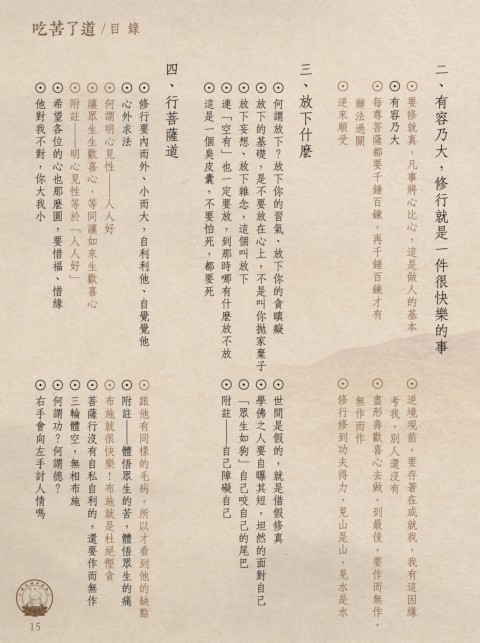 吃苦了道/目錄
二、有容乃大，修行就是一件很快樂的事
⊙要修就真，凡事將心比心，這是做人的基本
⊙有容乃大
⊙每尊菩薩都要千錘百鍊，再千錘百鍊才有
辦法過關
⊙逆來順受
⊙逆境現前，要存著在成就我，我有這因緣
考我，別人還沒有
⊙盡形壽歡喜心去做，到最後，要作而無作，
無作而作
⊙修行修到功夫得力，見山是山，見水是水
三、放下什麼
⊙何謂放下？放下你的習氣、放下你的貪瞋癡
⊙放下的基礎，是不要放在心上，不是叫你拋家棄子
⊙放下妄想、放下雜念，這個叫放下
⊙連「空有」也一定要放，到那時哪有什麼放不放
⊙這是一個臭皮囊，不要怕死，都要死
⊙世間是假的，就是借假修真
⊙學佛之人要自曝其短，坦然的面對自己
⊙「眾生如狗」自己咬自己的尾巴
⊙附註──自己障礙自己
四、行菩薩道
⊙修行要內而外、小而大，自利利他、自覺覺他
⊙心外求法
⊙何謂明心見性──人人好
⊙讓眾生生歡喜心，等同讓如來生歡喜心
⊙附註──明心見性等於「人人好」
⊙希望各位的心也那麼圓，要惜福、惜緣
⊙他對我不對，你大我小
⊙跟他有同樣的毛病，所以才看到他的缺點
⊙附註──體悟眾生的苦，體悟眾生的痛
⊙布施就很快樂！布施就是杜絕慳貪
⊙菩薩行沒有自私自利的，還要作而無作
⊙三輪體空，無相布施
⊙何謂功？何謂德？
⊙右手會向左手討人情嗎
15